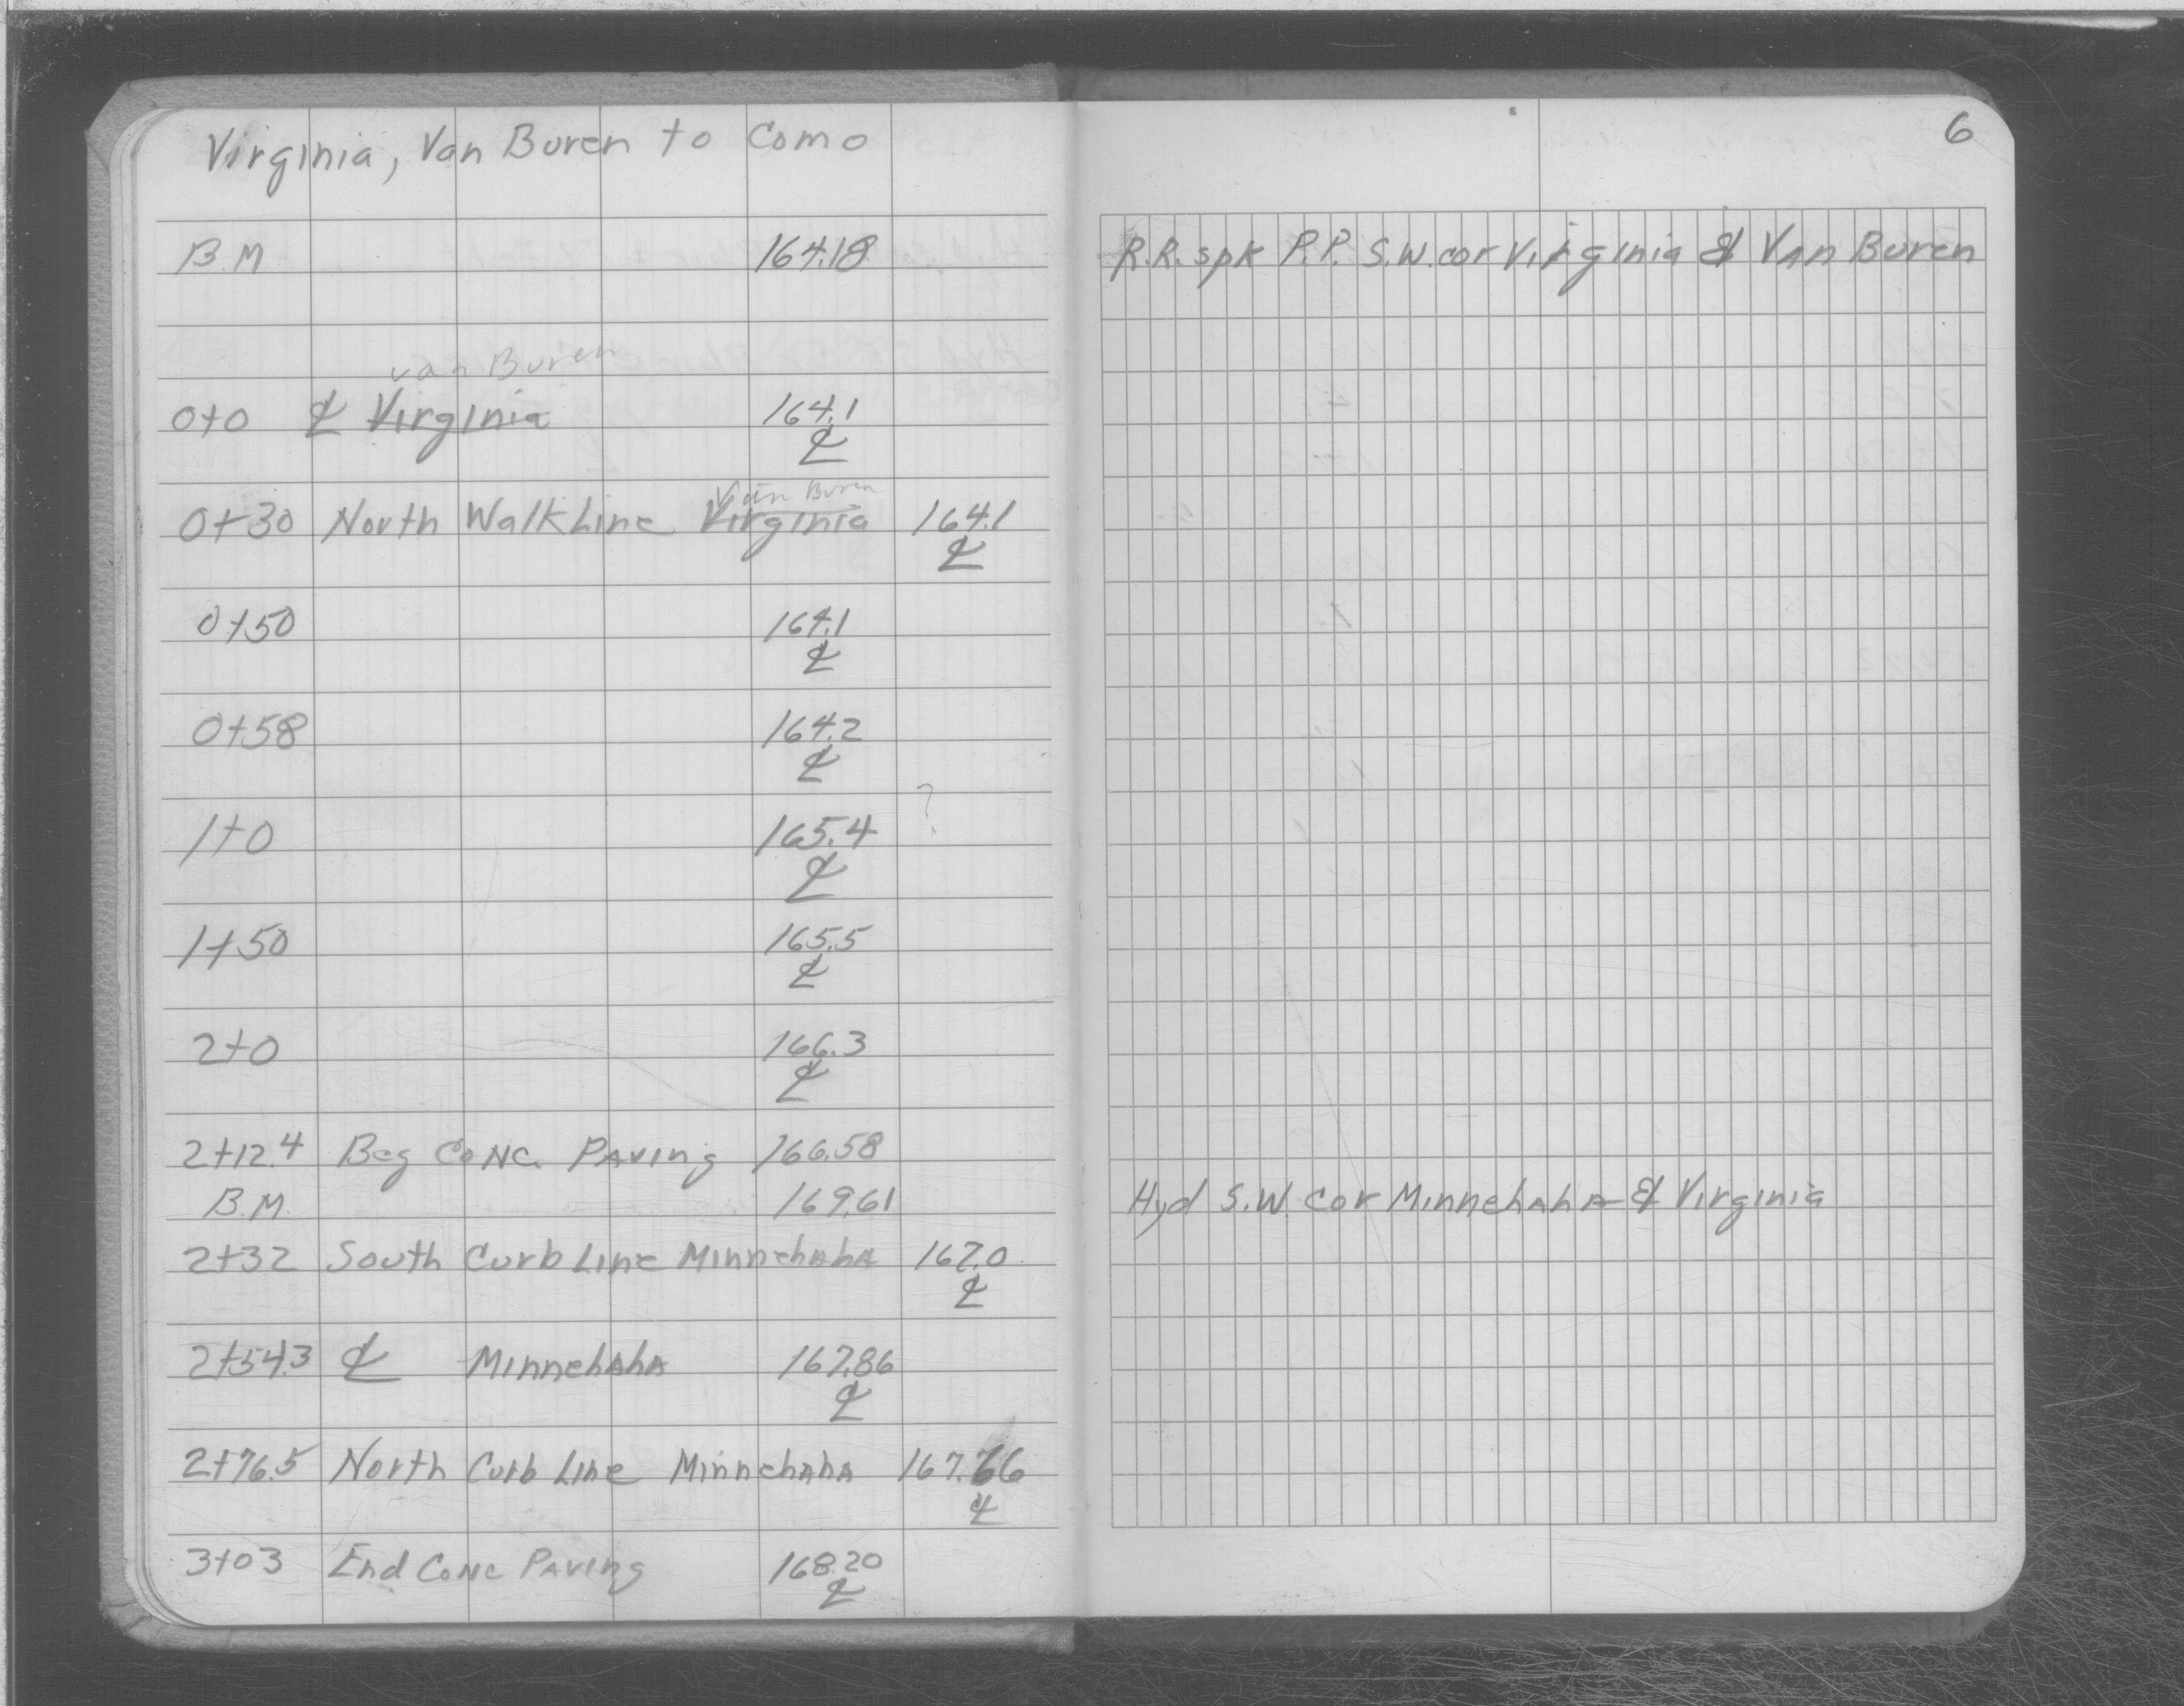 Virginia, Van Buren to Como
6
B.M 164.18 R.R. spk P.P. S.W. cor Virginia & Van Buren
van Buren
0+0 ℄ Virginia 164.1
℄
Van Buren
0+30 North Walk Line Virginia 164.1
℄
0+50 164.1
℄
0+58 164.2
℄
?
1+0 165.4
℄
1+50 165.5
℄
2+0 166.3
℄
2+12.4 Beg Conc. Paving 166.58
B.M. 169.61 Hyd S.W. cor Minnehaha & Virginia
2+32 South Curb Line Minnehaha 167.0
℄
2+54.3 ℄ Minnehaha 167.86
℄
2+76.5 North Curb Line Minnehaha 167.66
℄
3+03 End Conc Paving 168.20
℄